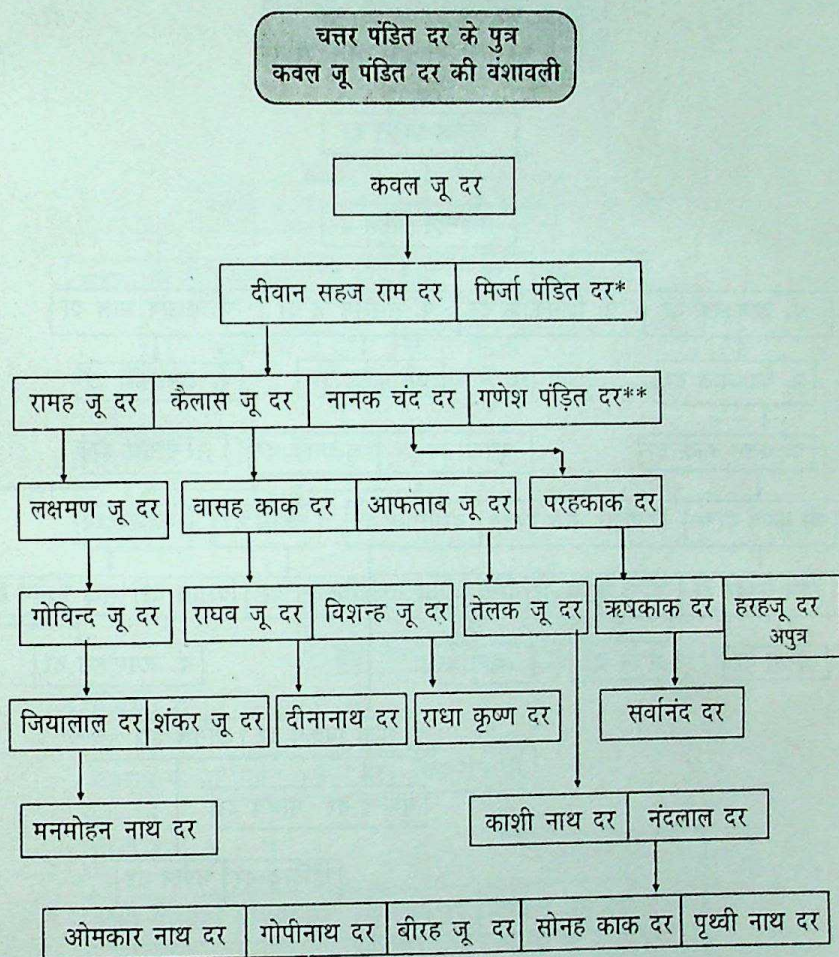 चत्तर पंडित दर के पुत्र
कवल जू पंडित दर की वंशावली
कवल जू दर
दीवान सहज राम दर मिर्जा पंडित दर*
रामह जू दर कैलास जू दर नानक चंद दर गणेश पंड़ित दर**
लक्षमण जू दर वासह काक दर आफताव जू दर परहकाक दर
गोविन्द जू दर राघव जू दर विशन्ह जू दर तेलक जू दर ऋषकाक दर हरहजू दर
अपुत्र
जियालाल दर शंकर जू दर दीनानाथ दर राधा कृष्ण दर सर्वानंद दर
मनमोहन नाथ दर काशी नाथ दर नंदलाल दर
ओमकार नाथ दर गोपीनाथ दर बीरह जू दर सोनह काक दर पृथ्वी नाथ दर